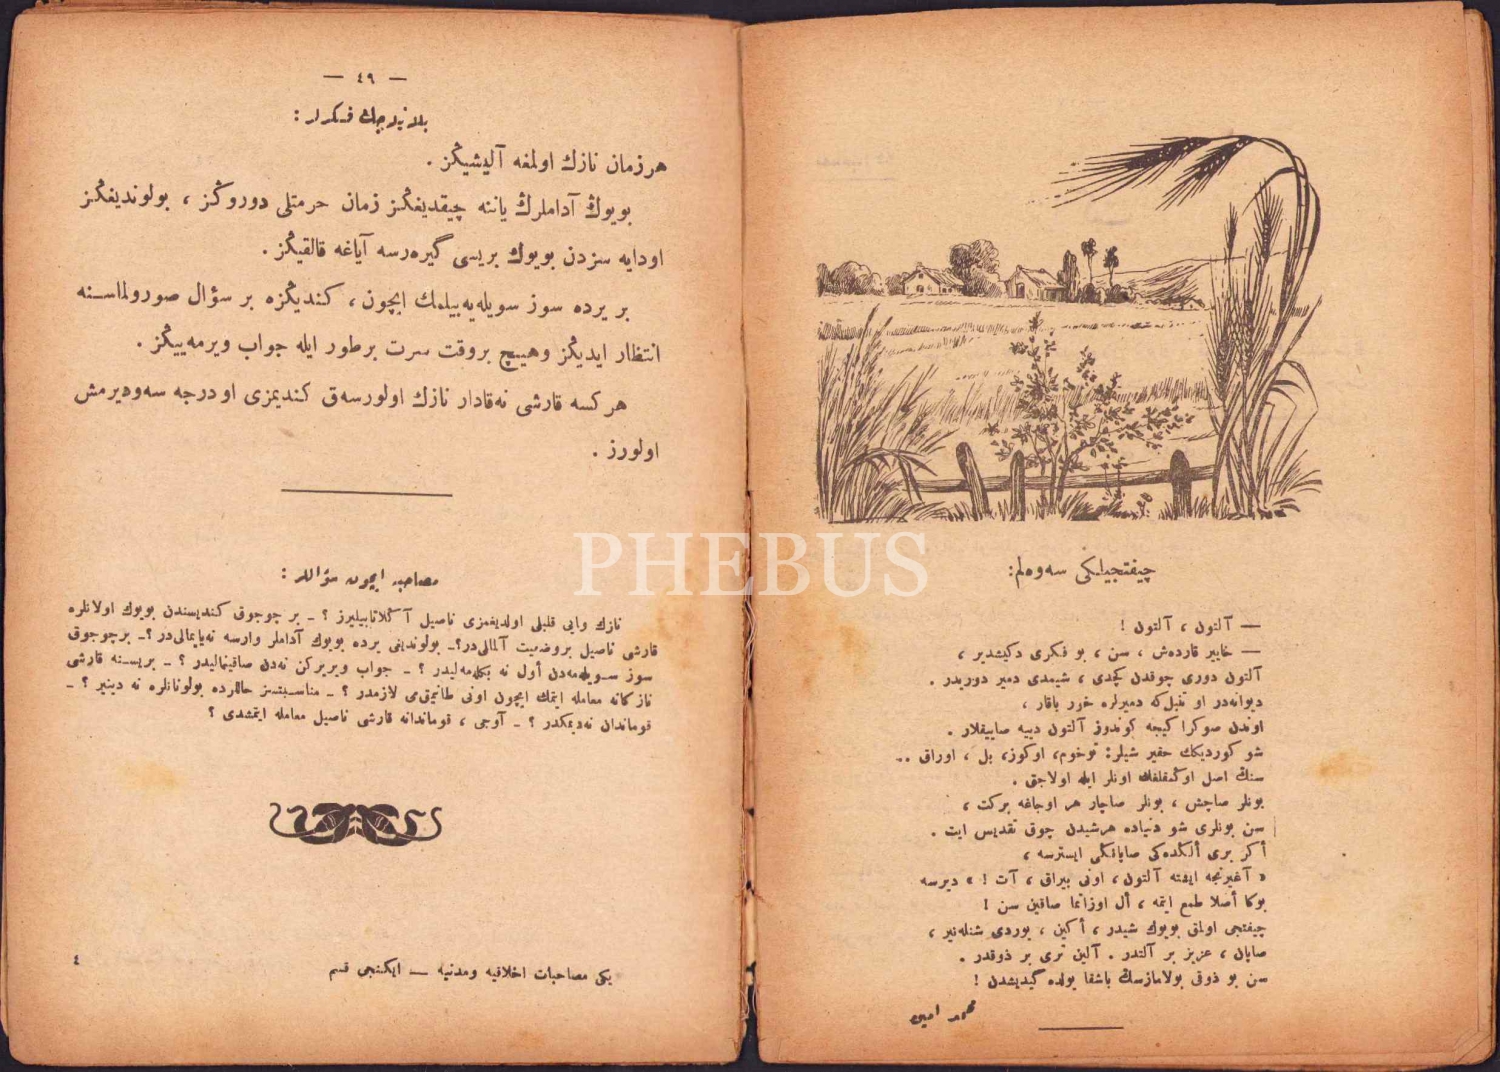 — ٤٩ —
بللنه‌جك فكرلر :
هر زمان نازك اولمغه آليشيڭز .
بويوك آداملرڭ ياننه چيقديغڭز زمان حرمتلى دوروڭز ، بولونديغڭز
اودايه سزدن بويوك بريسى گيررسه آياغه قالقيڭز .
بر يرده سوز سويله‌يه‌بيلمك ايچون ، كنديڭزه بر سؤال صورولماسنه
انتظار ايديڭز وهيچ بروقت سرت برطور ايله جواب ويرمه‌ييڭز .
هركسه قارشى نه‌قادار نازك اولورسه‌ق كنديمزى او درجه سه‌وديرمش
اولورز .
مصاحبه ايچون سؤاللر :
نازك وايى قلبلى اولديغمزى ناصيل آڭلاتابيليرز ؟ — بر چوجوق كنديسندن بويوك اولانلره
قارشى ناصيل بروضعيت آلمالى‌در؟— بولونديغى يرده بويوك آداملر وارسه نه‌ياپمالى‌در ؟— برچوجوق
سوز سويله‌مه‌دن أول نه بكله‌مه‌ليدر ؟ — جواب ويريركن نه‌دن صاقينماليدر ؟ — بريسنه قارشى
نازكانه معامله ايتمك ايچون اونى طانيمق‌مى لازمدر ؟ — مناسبتسز حاللرده بولونانلره نه دينير ؟ —
قوماندان نه‌ديمكدر ؟ — آوجى ، قوماندانه قارشى ناصيل معامله ايتمشدى ؟
يكى مصاحبات اخلاقيه ومدنيه — ايكنجى قسم
٤
چيفتجيلكى سه‌وه‌لم:
— آلتون ، آلتون !
— خاير قارده‌ش ، سن ، بو فكرى دكيشدير ،
آلتون دورى چوقدن كچدى ، شيمدى دمير دوريدر .
ديوانه‌در او تنبل‌كه دميرلره خور باقار ،
اوندن صوكرا كيجه كوندوز آلتون دييه صاييقلار .
شو كورديكك حقير شيلر: توخوم، اوكوز، بل ، اوراق ..
سنڭ اصل اوڭمقلغڭ اونلر ايله اولاجق .
بونلر صاچمش ، بونلر صاچار هر اوجاغه بركت ،
سن بونلرى شو دنياده هرشيدن چوق تقديس ايت .
أكر برى ألڭده‌كى صاپانڭى ايسترسه ،
« آغيرنجه ايشته آلتون ، اونى بيراق ، آت ! » ديرسه
بوكا أصلا طمع ايتمه ، أل اوزاتما صاقين سن !
چيفتجى اولمق بويوك شيدر ، أكين ، يوردى شنله‌نير ،
صاپان ، عزيز بر آلتدر . آلين ترى بر ذوقدر .
سن بو ذوقى بولامازسڭ باشقا يولده گيديشدن !
محمد امين
PHEBUS